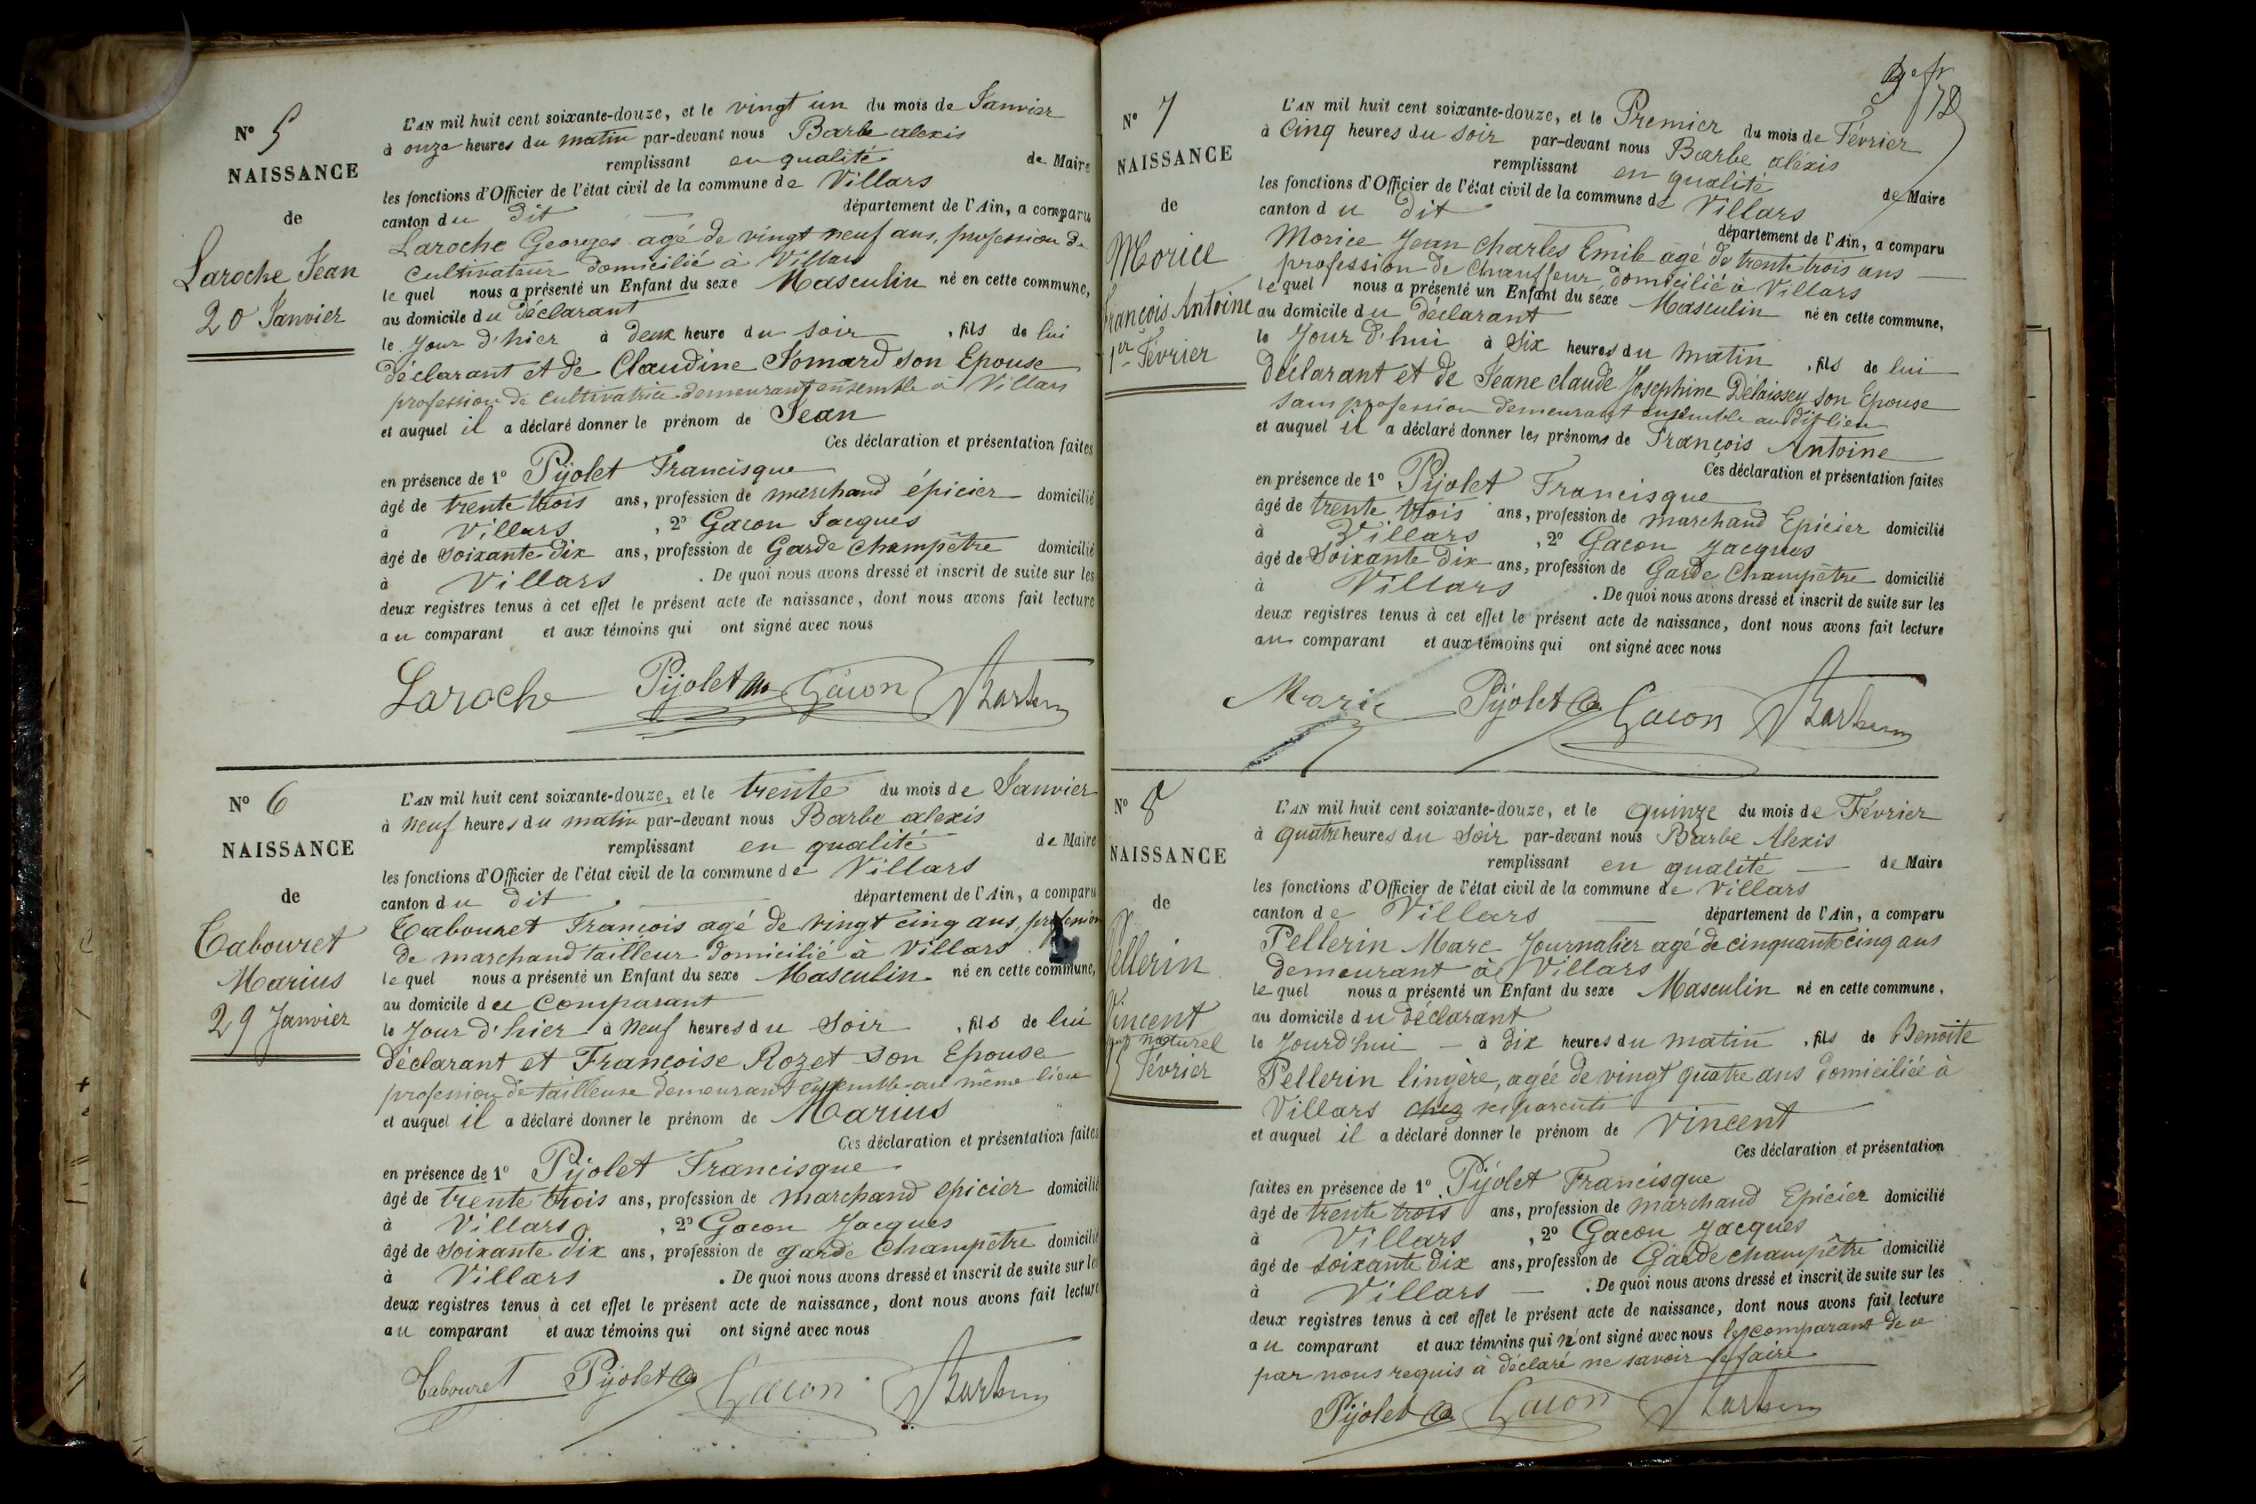 N° 5
NAISSANCE
de
Laroche Jean
20 Janvier
L'AN mil huit cent soixante-douze, et le vingt un du mois de Janvier
à onze heures du matin par-devant nous Barbe alexis
remplissant en qualité de Maire
les fonctions d'Officier de l'état civil de la commune de Villars
canton du dit département de l'Ain, a comparu
Laroche Georges agé de vingt neuf ans, profession de
Cultivateur domicilié à Villars
le quel nous a présenté un Enfant du sexe Masculin né en cette commune,
au domicile du déclarant
le Jour d'hier à deux heure du soir, fils de lui
déclarant et de Claudine Jomard son Epouse
profession de cultivatrice demeurant ensemble à Villars
et auquel il a déclaré donner le prénom de Jean
Ces déclaration et présentation faites
en présence de 1° Pijolet Francisque
âgé de trente trois ans, profession de marchand épicier domicilié
à Villars, 2° Gacon Jacques
âgé de soixante dix ans, profession de Garde Champêtre domicilié
à Villars. De quoi nous avons dressé et inscrit de suite sur les
deux registres tenus à cet effet le présent acte de naissance, dont nous avons fait lecture
au comparant et aux témoins qui ont signé avec nous
Laroche Pijolet Gacon Barbe
N° 6
NAISSANCE
de
Tabouret
Marius
29 Janvier
L'AN mil huit cent soixante-douze, et le trente du mois de Janvier
à neuf heures du matin par-devant nous Barbe alexis
remplissant en qualité de Maire
les fonctions d'Officier de l'état civil de la commune de Villars
canton du dit département de l'Ain, a comparu
Tabouret François agé de vingt cinq ans, profession
de marchand tailleur domicilié à Villars
le quel nous a présenté un Enfant du sexe Masculin né en cette commune,
au domicile du Comparant
le Jour d'hier à neuf heures du soir, fils de lui
déclarant et Françoise Rozet son Epouse
profession de tailleuse demeurant ensemble au même lieu
et auquel il a déclaré donner le prénom de Marius
Ces déclaration et présentation faites
en présence de 1° Pijolet Francisque
âgé de trente trois ans, profession de marchand epicier domicilié
à Villars, 2° Gacon Jacques
âgé de soixante dix ans, profession de garde Champêtre domicilié
à Villars. De quoi nous avons dressé et inscrit de suite sur les
deux registres tenus à cet effet le présent acte de naissance, dont nous avons fait lecture
au comparant et aux témoins qui ont signé avec nous
Tabouret Pijolet Gacon Barbe
N° 7
NAISSANCE
de
Morice
François Antoine
1er Février
L'AN mil huit cent soixante-douze, et le Premier du mois de Février
à Cinq heures du soir par-devant nous Barbe aléxis
remplissant en qualité de Maire
les fonctions d'Officier de l'état civil de la commune de Villars
canton du dit département de l'Ain, a comparu
Morice Jean Charles Emile agé de trente trois ans
profession de Chauffeur domicilié à Villars
le quel nous a présenté un Enfant du sexe Masculin né en cette commune,
au domicile du déclarant
le Jour d'hui à Six heures du matin, fils de lui
Déclarant et de Jeane claude Josephine Delaissey son Epouse
sans profession demeurant ensemble au dit lieu
et auquel il a déclaré donner les prénoms de François Antoine
Ces déclaration et présentation faites
en présence de 1° Pijolet Francisque
âgé de trente trois ans, profession de marchand Epicier domicilié
à Villars, 2° Gacon Jacques
âgé de Soixante dix ans, profession de Garde Champêtre domicilié
à Villars. De quoi nous avons dressé et inscrit de suite sur les
deux registres tenus à cet effet le présent acte de naissance, dont nous avons fait lecture
au comparant et aux témoins qui ont signé avec nous
Morice Pijolet Gacon Barbe
N° 8
NAISSANCE
de
Pellerin
Vincent
naturel
15 Février
L'AN mil huit cent soixante-douze, et le quinze du mois de Février
à quatre heures du soir par-devant nous Barbe Alexis
remplissant en qualité de Maire
les fonctions d'Officier de l'état civil de la commune de Villars
canton de Villars département de l'Ain, a comparu
Pellerin Marc Journalier agé de cinquante cinq ans
demeurant à Villars
le quel nous a présenté un Enfant du sexe Masculin né en cette commune,
au domicile du déclarant
le Jourd'hui à dix heures du matin, fils de Benoite
Pellerin lingère, agée de vingt quatre ans domiciliée à
Villars chez ses parents
et auquel il a déclaré donner le prénom de Vincent
Ces déclaration et présentation
faites en présence de 1° Pijolet Francisque
âgé de trente trois ans, profession de marchand Epicier domicilié
à Villars, 2° Gacon Jacques
âgé de soixante dix ans, profession de Garde champêtre domicilié
à Villars. De quoi nous avons dressé et inscrit de suite sur les
deux registres tenus à cet effet le présent acte de naissance, dont nous avons fait lecture
au comparant et aux témoins qui n'ont signé avec nous le comparant de ce
par nous requis à déclaré ne savoir le faire
Pijolet Gacon Barbe